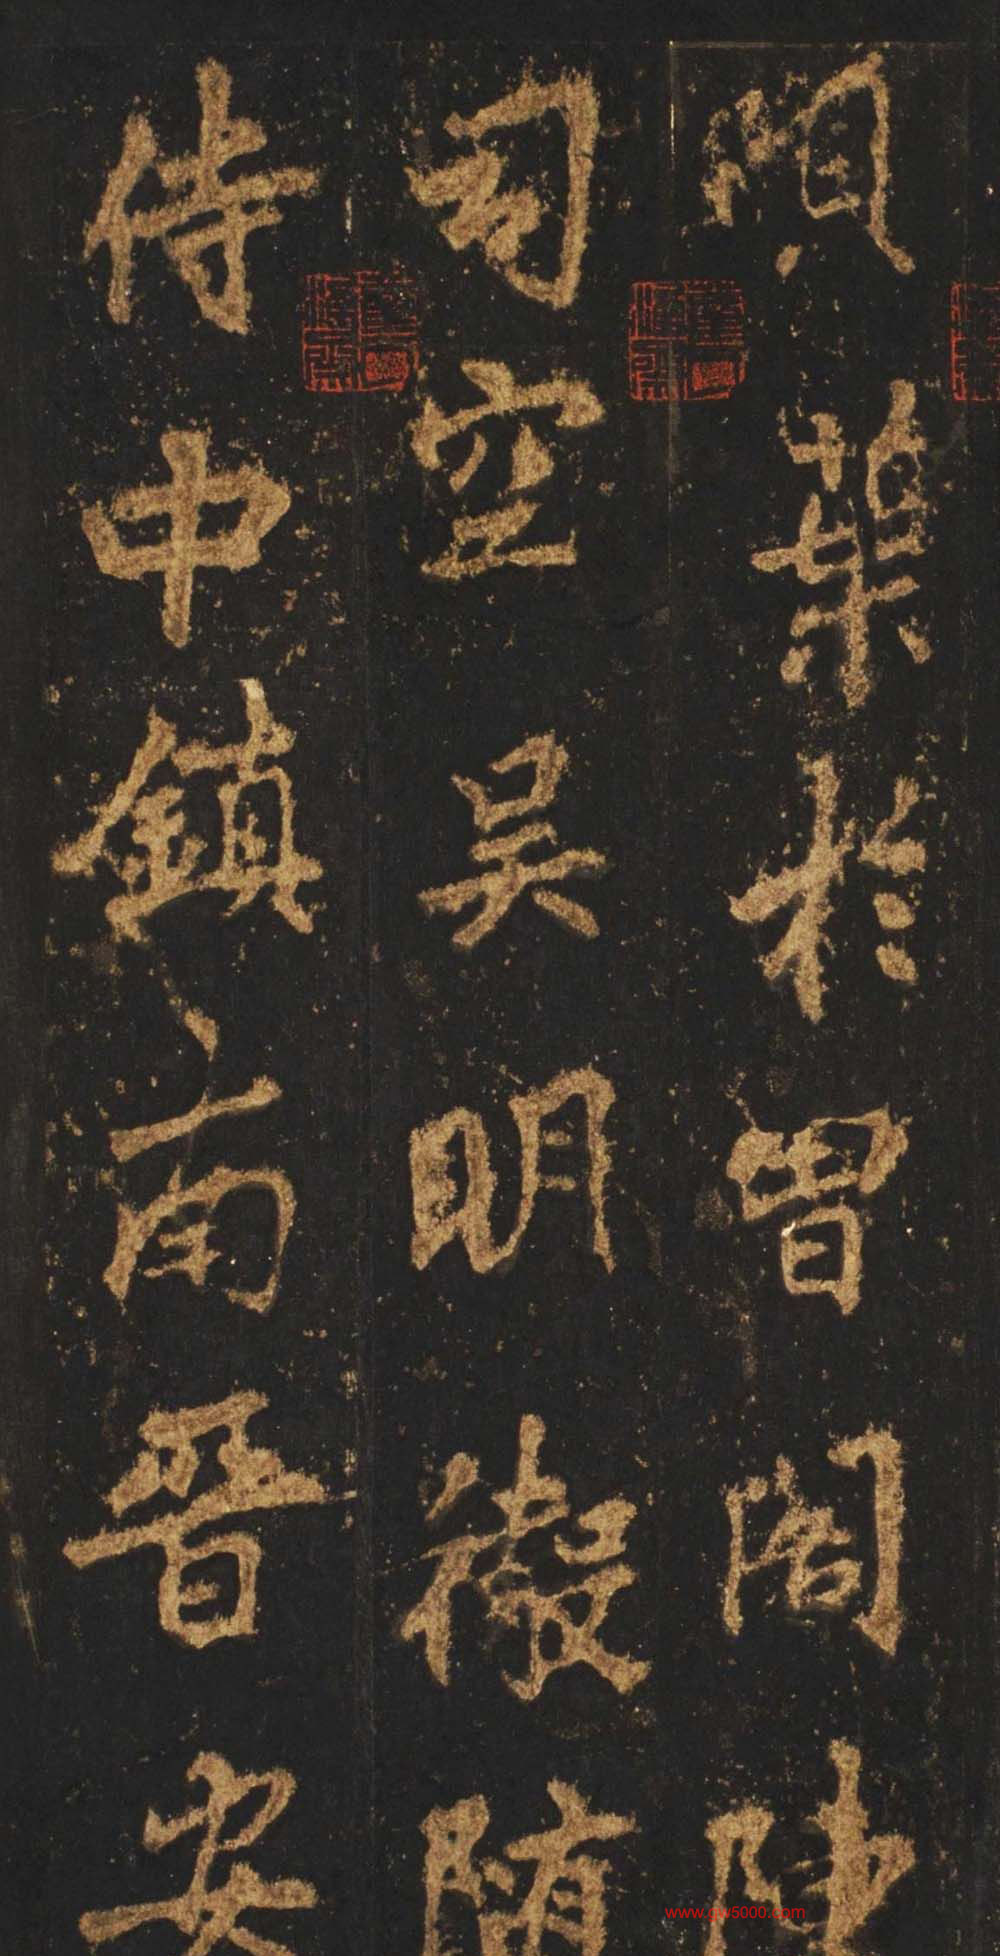 於曾閣陳
司空吴明徹隨
侍中鎮南晉安
www.gw5000.com